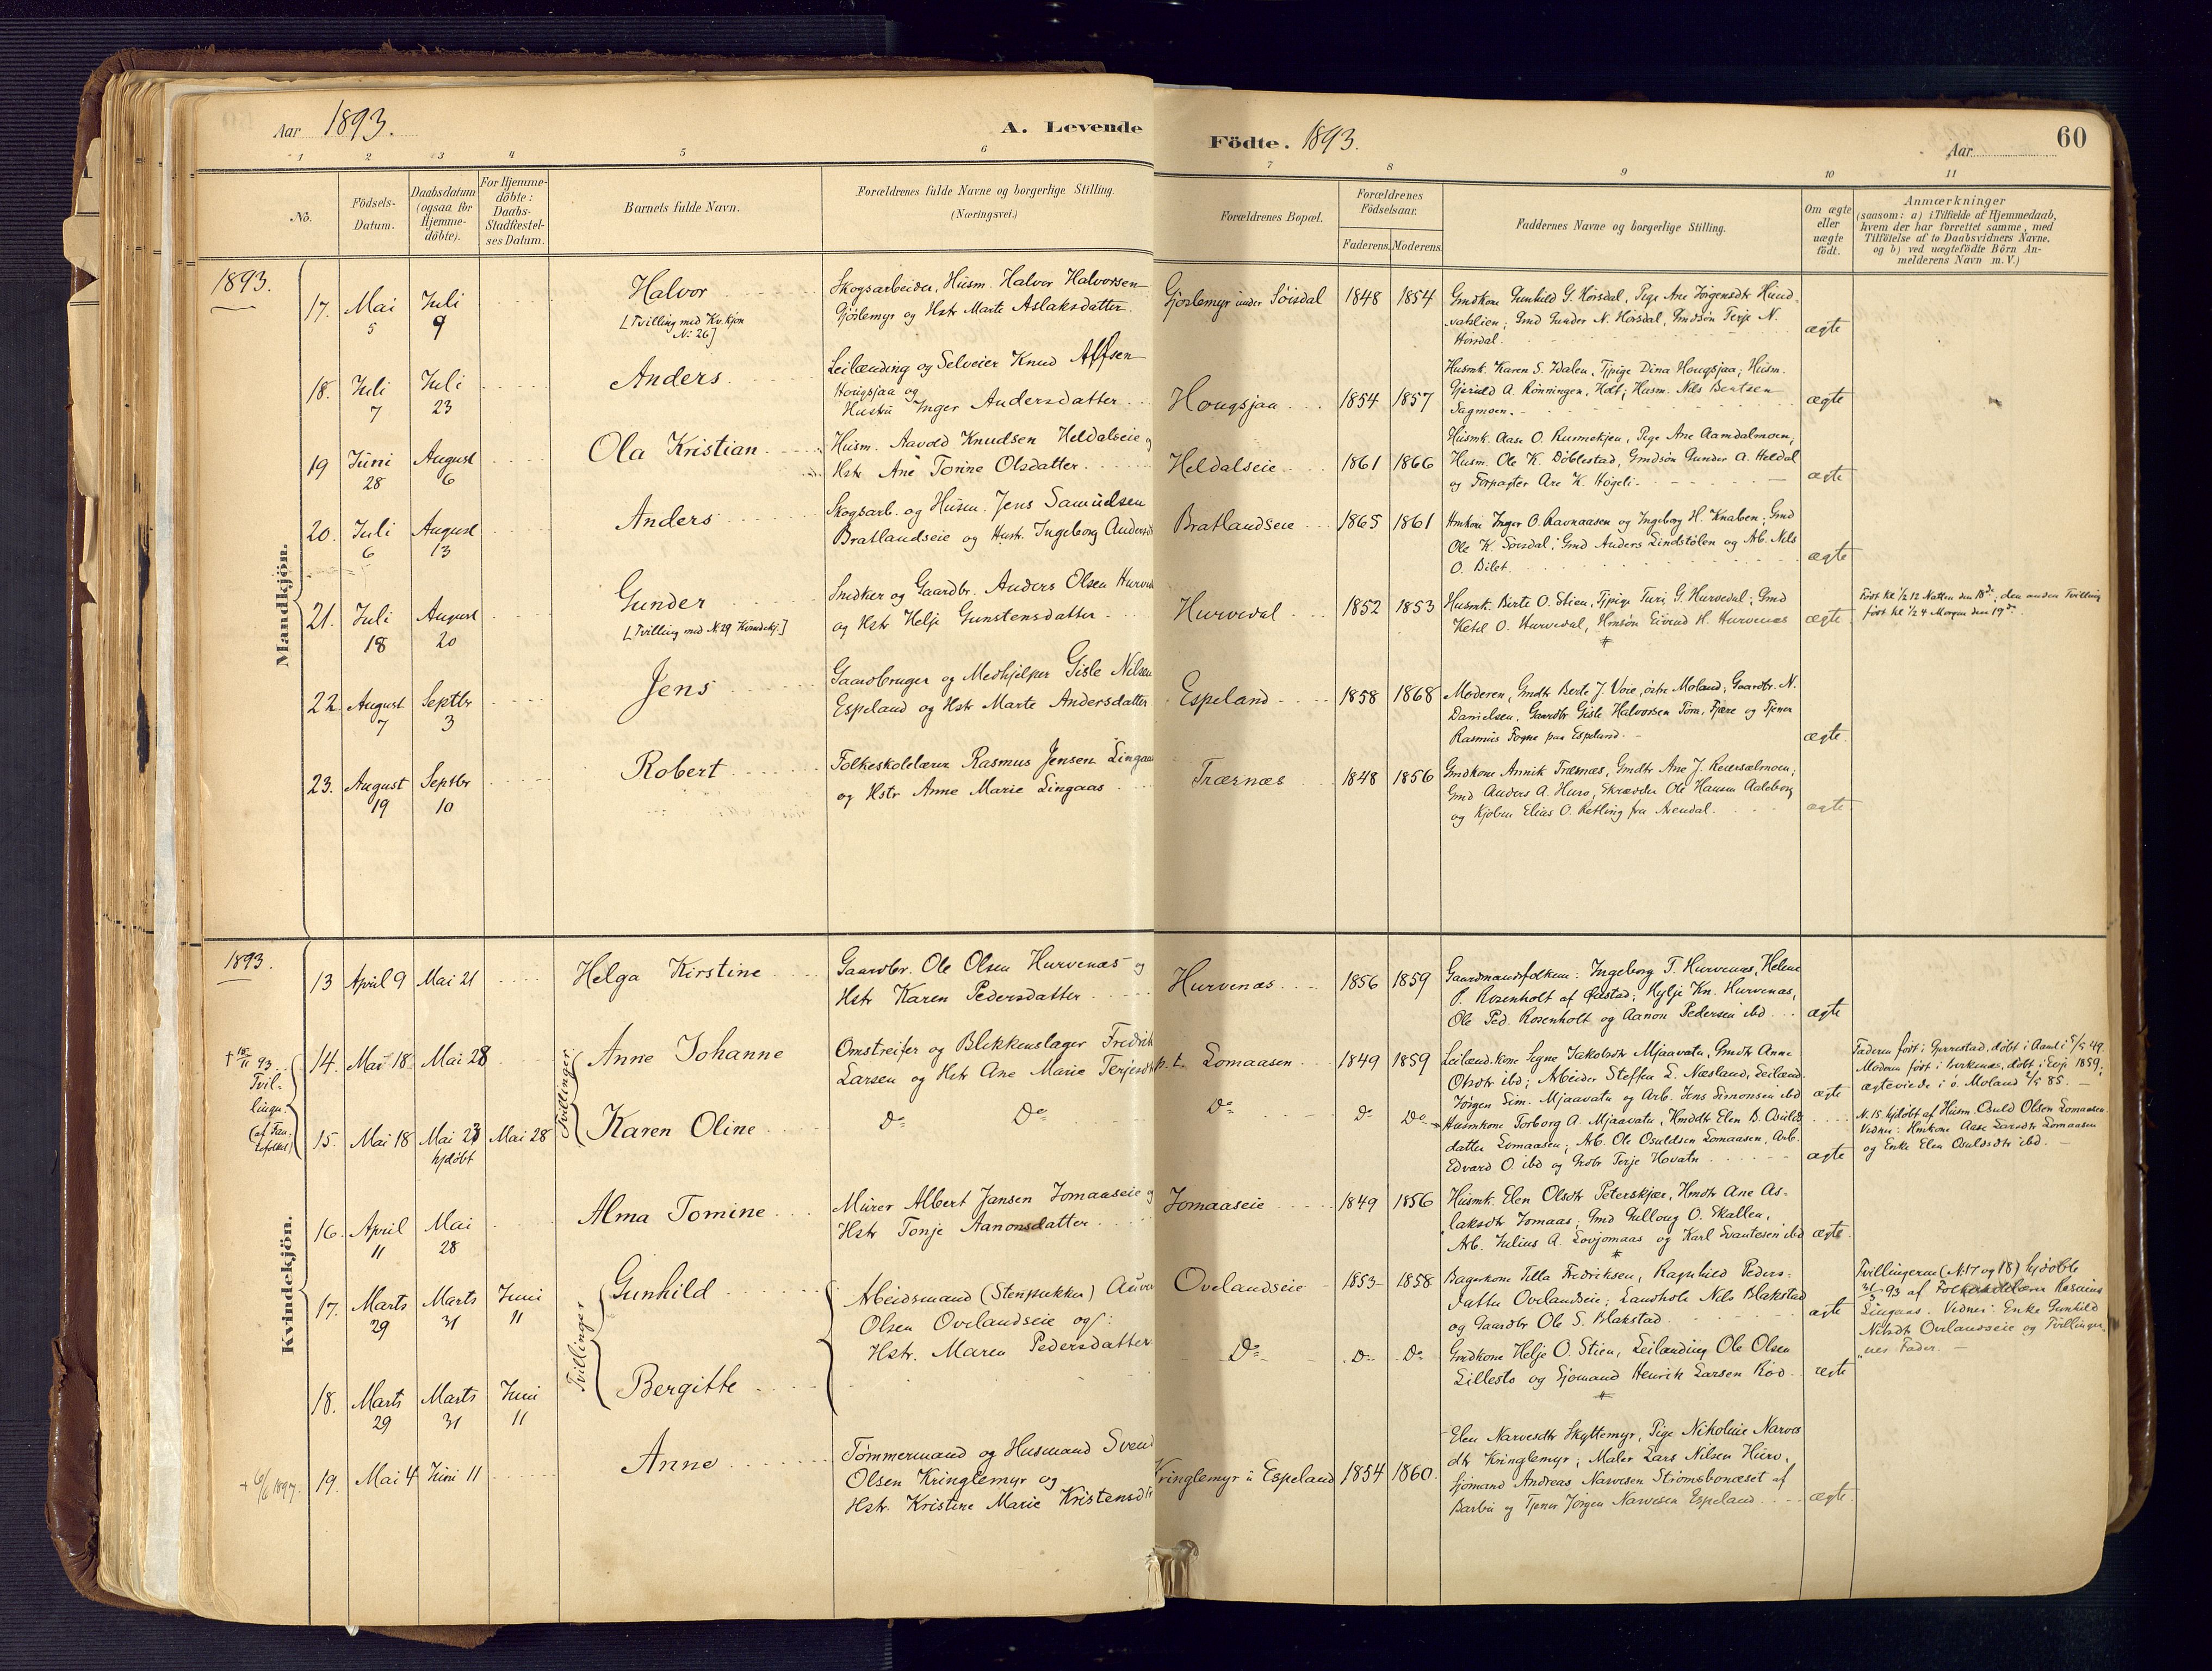 Aar 1893.
A. Levende
Födte. 1893.
Aar
60
1 2 3 4 5 6 7 8 9 10 11
No.
Födsels-Datum.
Daabsdatum (ogsaa for Hjemme-döbte).
For Hjemme-döbte: Daabs-Stadfæstel-ses Datum.
Barnets fulde Navn.
Forældrenes fulde Navne og borgerlige Stilling.
(Næringsvei.)
Forældrenes Bopæl.
Forældrenes Födselsaar.
Faderens. Moderens.
Faddernes Navne og borgerlige Stilling.
Om ægte eller uægte födt.
Anmærkninger
(saasom: a) i Tilfælde af Hjemmedaab,
hvem der har forrettet samme, med
Tilföielse af to Daabsvidners Navne.
og b) ved uægtefödte Börn An-
melderens Navn m.V.)
Mandkjön.
1893.
17. Mai 5 Juli 9 Halvor
[Tvilling med Kv.kjøn N: 26]
Skogsarbeider, Husm. Halvor Halvorsen
Gjöslemyr og Hstr Marte Aslaksdatter.
Gjöslemyr under Söisdal 1848 1854
Gmdkone Gunhild G. Horsdal, Pige Ane Jörgensdtr Hund-
vahlien; Gmd Gunder N. Horsdal, Gmdsön Terje N.
Horsdal. ægte
18. Juli 7 Juli 23 Anders
Leilænding og Selveier Knud Alfsen
Hougsjaa og
Hustru Inger Andersdatter
Hougsjaa 1854 1857
Husmk. Karen S. Dalen, Tjpige Dina Hougsjaa; Husm.
Gjeruld A. Rönningen, Holt; Husm. Nils Bentsen
Sagmoen. ægte
19 Juni 28 August 6 Ola Kristian
Husm. Aavold Knudsen Heldalseie og
Hstr Ane Tonine Olsdatter.
Heldalseie 1861 1866
Husmk. Aase O. Runnekjen, Pige Ane Aamdalmoen;
Husm. Ole K. Döblestad, Gmdsön Gunder A. Heldal
og Forpagter Are K. Högeli. ægte
20. Juli 6 August 13 Anders
Skogsarb. og Husm. Jens Samuelsen
Bratlandseie og Hustr. Ingeborg Andersd
Bratlandseie 1865 1861
Hmkone Inger O. Ravnaasen og Ingeborg H. Knaben; Gmd
Ole K. Sörsdal; Gmd Anders Lindstölen og Arb. Nils
O. Bilet. ægte
21. Juli 18 August 20 Gunder
[Tvilling med N. 29 Kvindekj.]
Snedker og Gaardbr. Anders Olsen Hurved
og Hstr Helje Gunstensdatter
Hurvedal 1852 1853
Husmk. Birte O. Stien, Tjpige Turi G. Hurvedal; Gmd
Ketil O. Hurvedal, Hmsön Eivind H. Hurvenes ægte
Födt kl 1/2 12 Natten den 18de, den anden Tvilling
födt kl 1/2 4 Morgen den 19de.
22. August 7 Septbr 3 Jens
Gaardbruger og Medhjelper Gisle Nilsen
Espeland og Hstr Marte Andersdatter
Espeland 1858 1868
Moderen, Gmdtr Berte J. Voie, östre Moland; Gaardbr. N.
Danielsen, Gaardbr Gisle Halvorsen Törn, Fjære og Tjener
Rasmus Fogne paa Espeland. ægte.
23. August 19 Septbr 10 Robert
Folkeskolelærer Rasmus Jensen Lingaas
og Hstr Anne Marie Lingaas
Trærnæs 1848 1856
Gmdkone Annik Trærnæs, Gmdtr Ane J. Reiersælmoen;
Gmd Anders A. Huro, Skrædder Ole Hansen Aaleborg
og Kjöbm Elias O. Ketling fra Arendal. ægte
Kvindekjön.
1893.
13 April 9 Mai 21 Helga Kirstine
Gaardbr. Ole Olsen Hurvenæs og
Hstr Karen Pedersdatter
Hurvenæs 1856 1859
Gaardmandsfolkene: Ingeborg T. Hurvenæs, Helene
P. Rosenholt af Öiestad; Hylje Kn. Hurvenæs,
Ole Ped. Rosenholt og Aanon Pedersen ibd. ægte
† 18/11 93.
Tvil-
lingen.
14. Mai 18 Mai 28 Tvillinger Anne Johanne
Omstreifer og Blikkenslager Fredrik
Larsen og Hstr Ane Marie Terjesdtr
p.t. Lomaasen 1849 1859
Leilænd.kone Signe Jakobsdtr Mjaavatn, Gmdtr Anne
Olsdtr ibd; Arbeider Steffen L. Næsland, Leilænd
Jörgen Sim. Mjaavatn og Arb. Jens Simonsen ibd ægte
Faderen født i Gjerrestad, döbt i Aamli 5/5 49.
Moderen født i birkenæs, döbt i Evje 1859;
ægteviede i ö. Moland 2/5 85.
15. Mai 18 Mai 23 hjdöbt Mai 28 Karen Oline
Do Do Do Do Do
Husmkone Torborg A. Mjaavatn, Hmdtr Elen B. Osulds-
datter Lomaasen; Arb. Ole Osuldsen Lomaasen, Arb.
Edvard O. ibd og Grdbr Terje Hovatn ægte
N. 15. hjdöbt af Husm. Osuld Olsen Lomaasen.
Vidner: Hmkone Aase Larsdtr Lomaasen
og Enke Elen Osuldsdtr ibd.
16. April 11 Mai 28 Alma Tomine
Murer Albert Jansen Jomaaseie og
Hstr Tonje Aanonsdatter
Jomaaseie 1849 1856
Husmk. Elen Olsdtr Peterskjær, Hmdtr Ane As-
laksdtr Jomaas; Gmd Gulloug O. Skallen,
Arb. Julius A. Lovjomaas og Karl Svantesen ibd ægte.
17. Marts 29 Marts 31 Juni 11 Tvillinger Gunhild
Arbeidsmand (Stenpukker) Auver
Olsen Ovelandseie og:
Hstr. Maren Pedersdatter
Ovelandseie 1853 1858
Bagerkone Tilla Fredriksen, Ragnhild Peders-
datter Ovelandseie; Landhdl. Nils Blakstad
og Gaardbr Ole S. Blakstad. ægte
Tvillingerne (N:17 og 18) hjdöbte
31/3 93 af Folkeskolelærer Rasmus
Lingaas. Vidner: Enke Gunhild
Nilsdtr Ovelandseie og Tvillinger-
nes Fader.
18. Marts 29 Marts 31 Juni 11 Bergitte
Do Do Do
Gmdkone Helje O. Stien, Leilænding Ole Olsen
Lillestö og Sjömand Henrik Larsen Kiö. ægte
† 6/6 1897. 19. Mai 4 Juni 11 Anne
Tömmermand og Husmand Svend
Olsen Kringlemyr og
Hstr. Kristine Marie Kristensdtr
Kringlemyr u Espeland 1854 1860.
Elen Narvesdtr Skyttemyr, Pige Nikoline Narves
dtr Kringlemyr; Maler Lars Nilsen Huro,
Sjömand Andreas Narvesen Strömsbonæset af
Barbu og Tjener Jörgen Narvesen Espeland ægte.